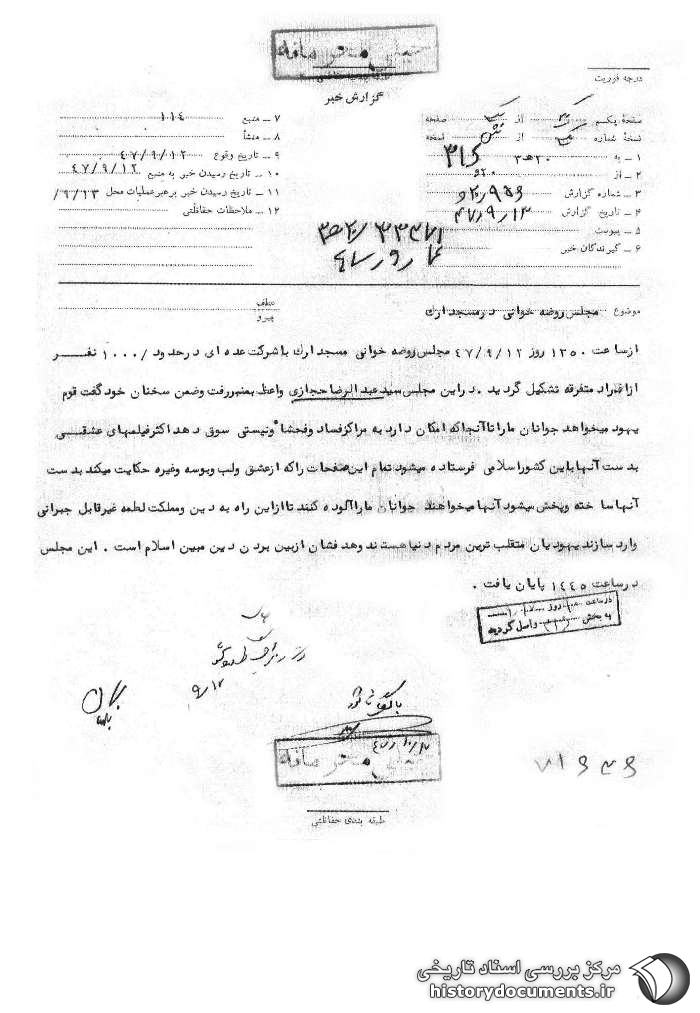 خیلی محرمانه
طبقه بندی حفاظتی
گزارش خبر
درجه فوریت
صفحهٔ یکم از صفحه
نسخهٔ شماره از نسخه
۱ ــ به ۳۱۵
۲ ــ از
۳ ــ شماره گزارش
۴ ــ تاریخ گزارش ۴۷/۹/۱۳
۵ ــ پیوست
۶ ــ گیرندگان خبر
۷ ــ منبع ۱۱۴
۸ ــ منشأ
۹ ــ تاریخ وقوع ۴۷/۹/۱۲
۱۰ ــ تاریخ رسیدن خبر به منبع ۴۷/۹/۱۲
۱۱ ــ تاریخ رسیدن خبر برهبر عملیات محل ۹/۱۳/
۱۲ ــ ملاحظات حفاظتی
عطف
پیرو
موضوع مجلس روضه خوانی در مسجد ارك
از ساعت ۱۳۵۰ روز ۴۷/۹/۱۲ مجلس روضه خوانی مسجد ارك با شرکت عده ای در حدود /۱۰۰۰ نفر
از افراد متفرقه تشکیل گردید . در این مجلس سید عبدالرضا حجازی واعظ بمنبر رفت وضمن سخنان خود گفت قوم
یهود میخواهد جوانان ما را تا آنجا که امکان دارد به مراکز فساد وفحشاء ونیستی سوق دهد اکثر فیلمهای عشقی
بدست آنها باین کشور اسلامی فرستاده میشود تمام این صفحات را که از عشق ولب وبوسه وغیره حکایت میکند بدست
آنها ساخته وپخش میشود آنها میخواهند جوانان ما را آلوده کنند تا از این راه به دین ومملکت لطمه غیر قابل جبرانی
وارد سازند یهودیان متقلب ترین مردم دنیا هستند وهدفشان از بین بردن دین مبین اسلام است . این مجلس
در ساعت ۱۴۴۵ پایان یافت .
در ساعت روز
به بخش واصل گردید
۹/۱۲
بایگانی شود
خیلی محرمانه
طبقه بندی حفاظتی
مرکز بررسی اسناد تاریخی
historydocuments.ir